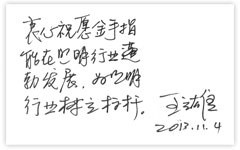 衷心祝愿金手指
能在照明行业蓬
勃发展，为照明
行业树立标杆。
王雄
2013.11.4